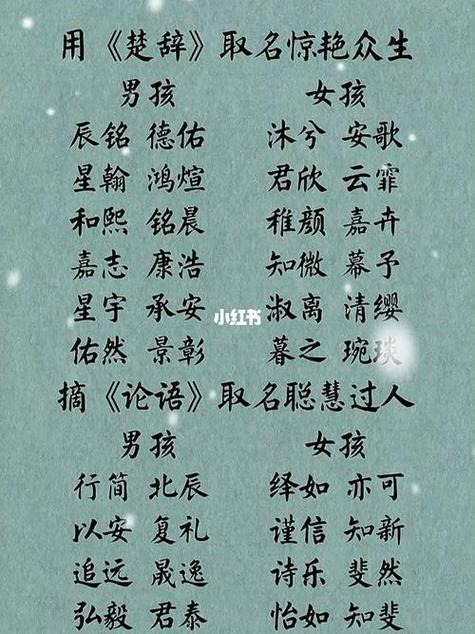 用《楚辞》取名惊艳众生
男孩 女孩
辰铭 德佑 沐兮 安歌
星翰 鸿煊 君欣 云霏
和熙 铭晨 稚颜 嘉卉
嘉志 康浩 知微 幕予
星宇 承安 淑离 清缨
小红书
佑然 景彰 暮之 琬琰
摘《论语》取名聪慧过人
男孩 女孩
行简 北辰 绎如 亦可
以安 复礼 谨信 知新
追远 晟逸 诗乐 斐然
弘毅 君泰 怡如 知斐